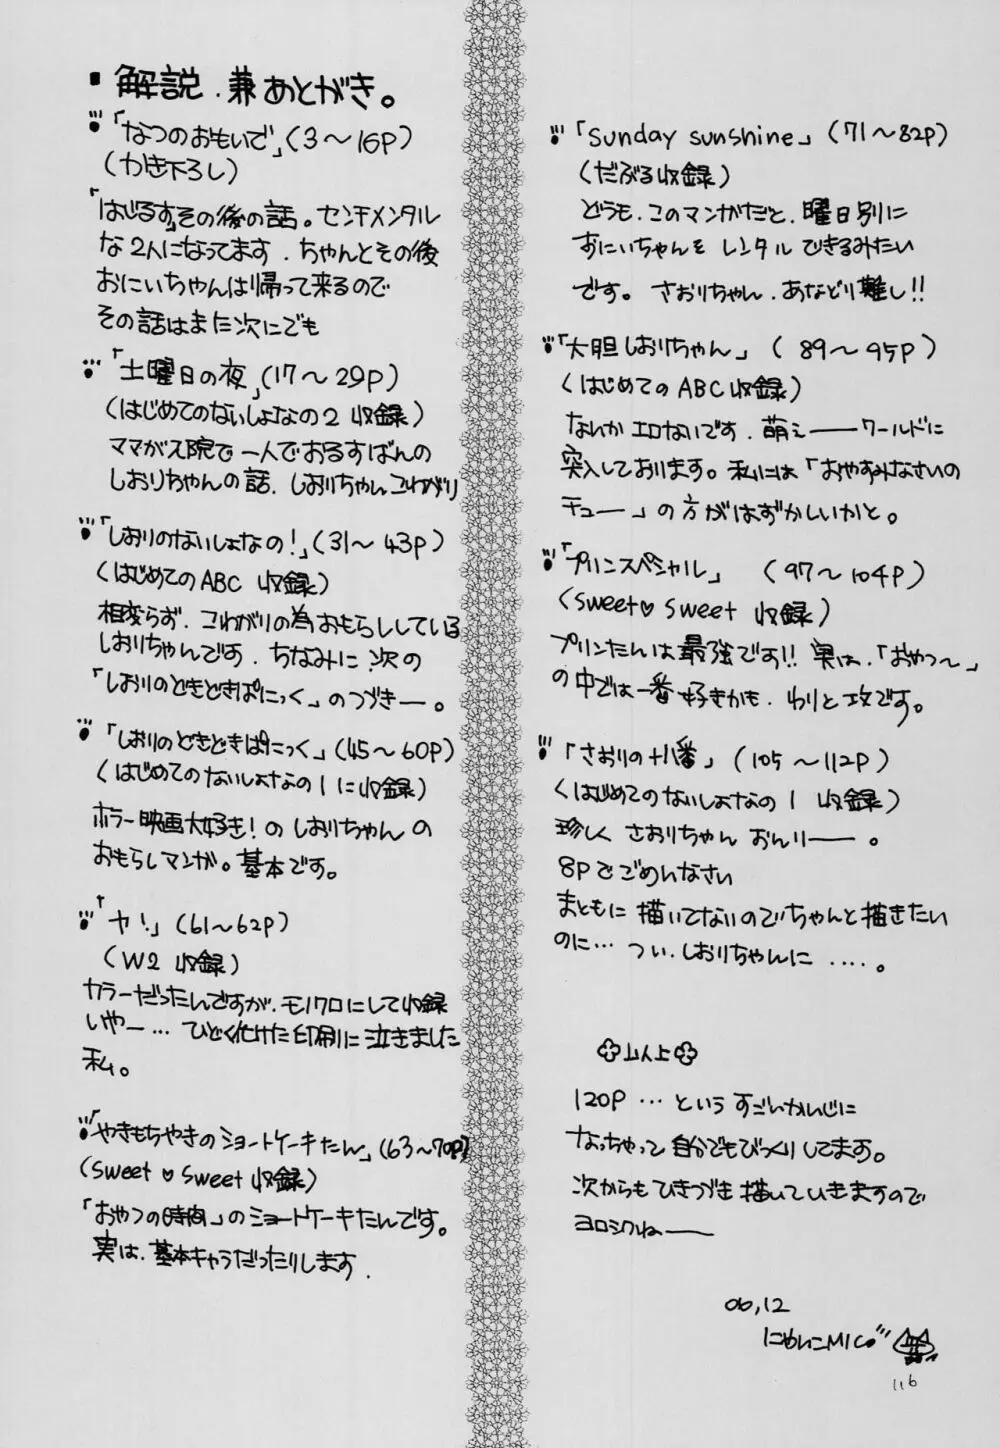 ・解説.兼あとがき。
「なつのおもいで」(3～16P)
(かき下ろし)
「はじるす」その後の話。センチメンタル
な2人になってます.ちゃんとその後
おにいちゃんは帰って来るので
その話はまた次にでも
「土曜日の夜」(17～29P)
(はじめてのないしょなの2 収録)
ママが入院で一人でおるすばんの
しおりちゃんの話.しおりちゃんこわがり
「しおりのないしょなの!」(31～43P)
(はじめてのABC 収録)
相変らず.こわがりの為おもらししている
しおりちゃんです.ちなみに次の
「しおりのどきどきぱにっく」のつづきー。
「しおりのどきどきぱにっく」(45～60P)
(はじめてのないしょなの1に収録)
ホラー映画大好き!のしおりちゃんの
おもらしマンガ。基本です。
「ヤ!」(61～62P)
(W2 収録)
カラーだったんですが.モノクロにして収録
いやー…ひどく化けた印刷に泣きました
私。
「やきもちやきのショートケーキたん」(63～70P)
(Sweet♡Sweet収録)
「おやつの時間」のショートケーキたんです。
実は.基本キャラだったりします.
「Sunday sunshine」(71～82P)
(だぶる収録)
どうも.このマンガだと.曜日別に
おにいちゃんをレンタルできるみたい
です。さおりちゃん.あなどり難し!!
「大胆しおりちゃん」(89～95P)
(はじめてのABC収録)
なんかエロないです.萌えーワールドに
突入しております。私には「おやすみなさいの
チュー」の方がはずかしいかと。
「プリンスペシャル」(97～104P)
(Sweet♡Sweet 収録)
プリンたんは最強です!!実は.「おやつ～」
の中では一番好きかも.わりと攻です。
「さおりの十八番」(105～112P)
(はじめてのないしょなの1 収録)
珍しくさおりちゃんおんりー。
8Pでごめんなさい
まともに描いてないのでちゃんと描きたい
のに…つい.しおりちゃんに….。
以上
120P…というすごいかんじに
なっちゃって自分でもびっくりしてます。
次からもひきつづき描いていきますので
ヨロシクねー
06,12
にゃんこMIC
116